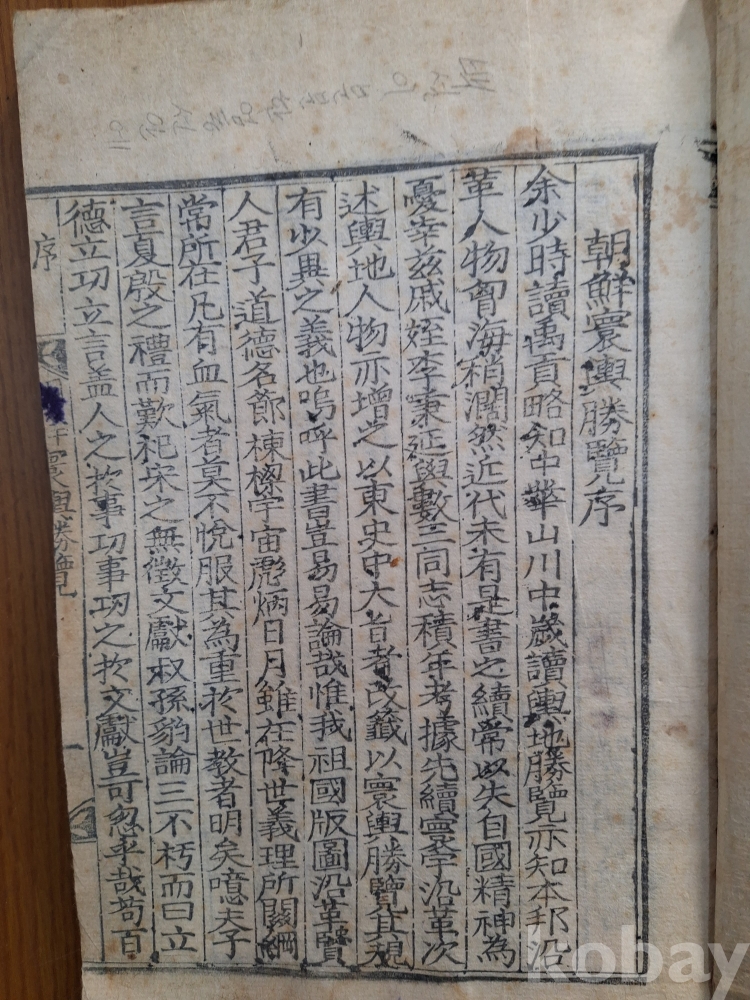 朝鮮寰輿勝覽序
余少時讀禹貢略知中華山川中歲讀輿地勝覽亦知本邦沿
革人物曾海稍濶然近代未有是書之續常以失自國精神為
憂幸玆戚姪李秉延與數三同志積年考據先續寰宇沿革次
述輿地人物亦增之以東史中大旨者改籤以寰輿勝覽其規
有少異之義也嗚呼此書豈易易論哉惟我祖國版圖沿革賢
人君子道德名節棟樑宇宙彪炳日月雖在降世義理所關綱
常所在凡有血氣者莫不悅服其為重於世教者明矣噫夫子
言夏殷之禮而歎杞宋之無徵文獻叔孫豹論三不朽而曰立
德立功立言盖人之於事功事功之於文獻豈可忽乎哉苟百
序
寰輿勝覽
一
kobay